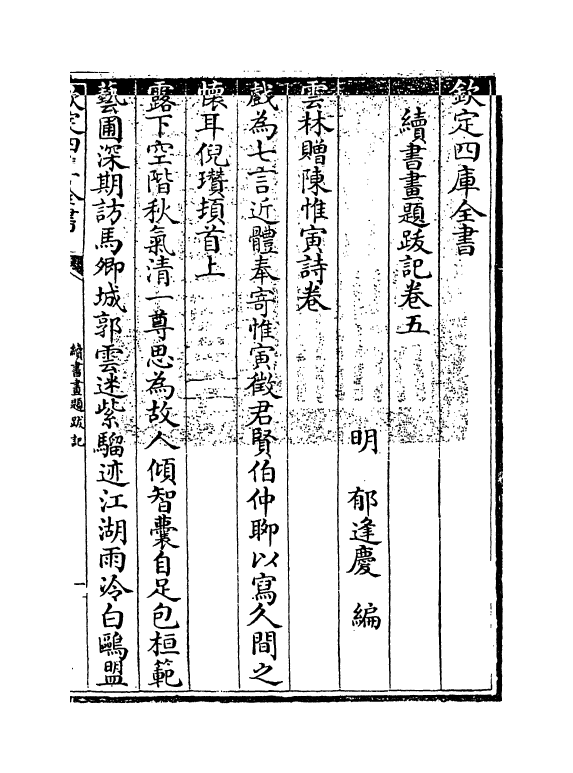 欽定四庫全書
續書畫題跋記卷五
明 郁逢慶 編
雲林贈陳惟寅詩卷
戲為七言近體奉寄惟寅徵君賢伯仲聊以寫久間之
懷耳倪瓚頓首上
露下空階秋氣清一尊思為故人傾智囊自足包桓範
藝圃深期訪馬卿城郭雲迷紫騮迹江湖雨冷白鷗盟
欽定四庫全書
續書畫題跋記
一